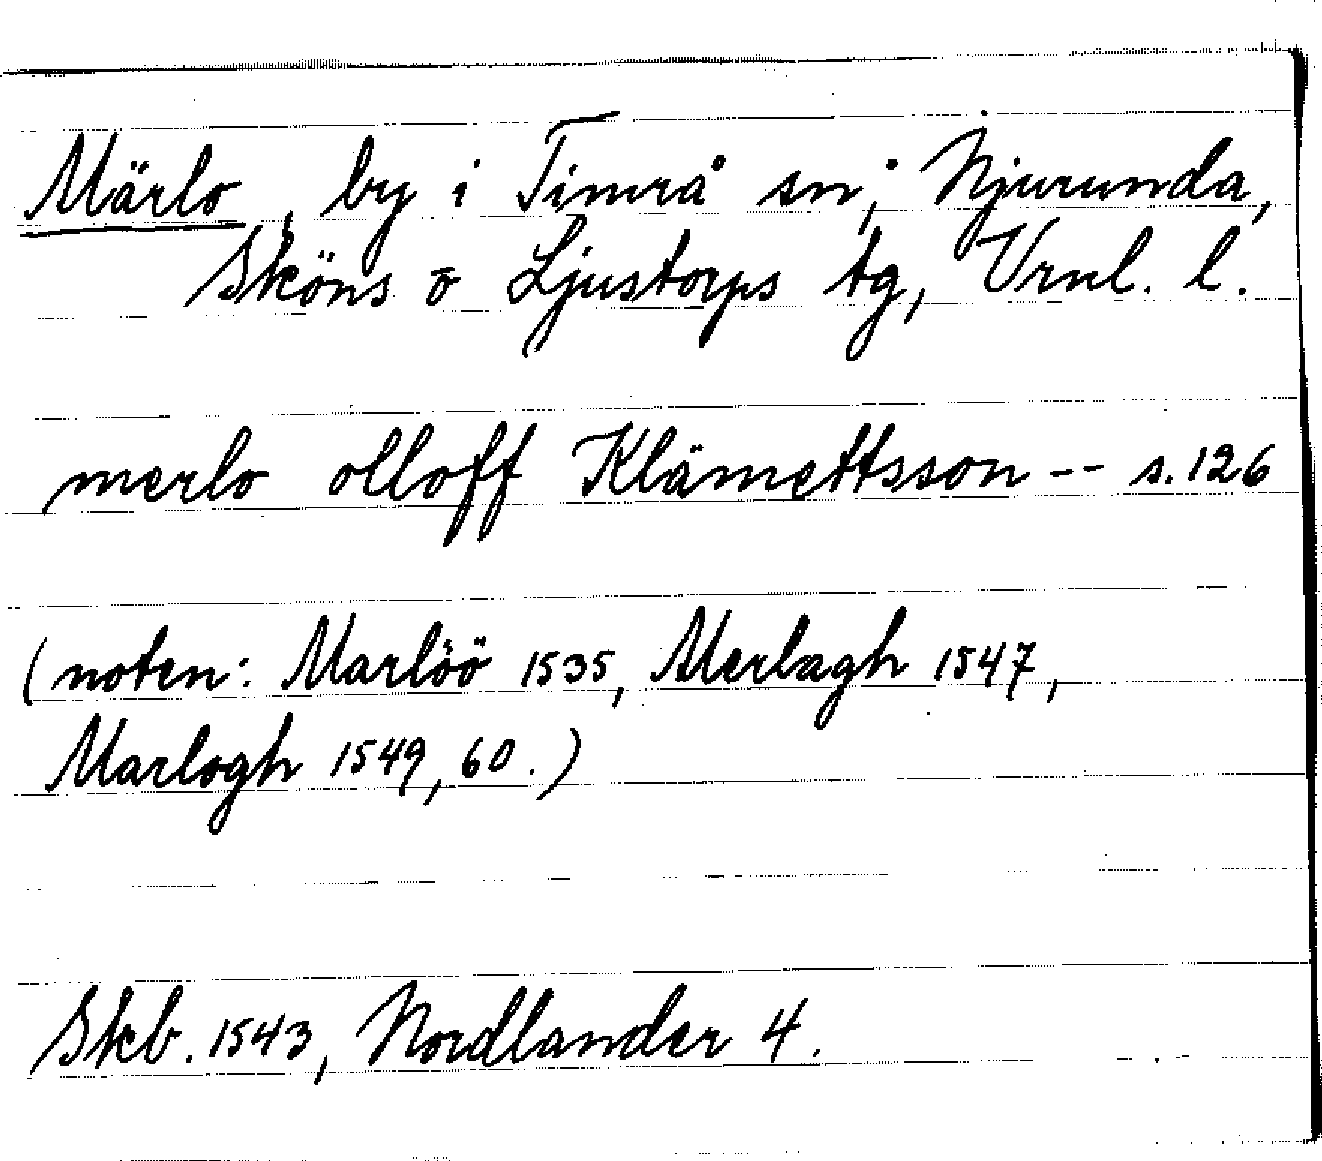 Märlo, by i Timrå sn, Njurunda,
Sköns o Ljustorps tg, Vrnl. l.
merlo olloff Klämettsson -- s. 126
(noten: Marlöö 1535, Merlagh 1547,
Marlogh 1549, 60.)
Skb. 1543, Nordlander 4.